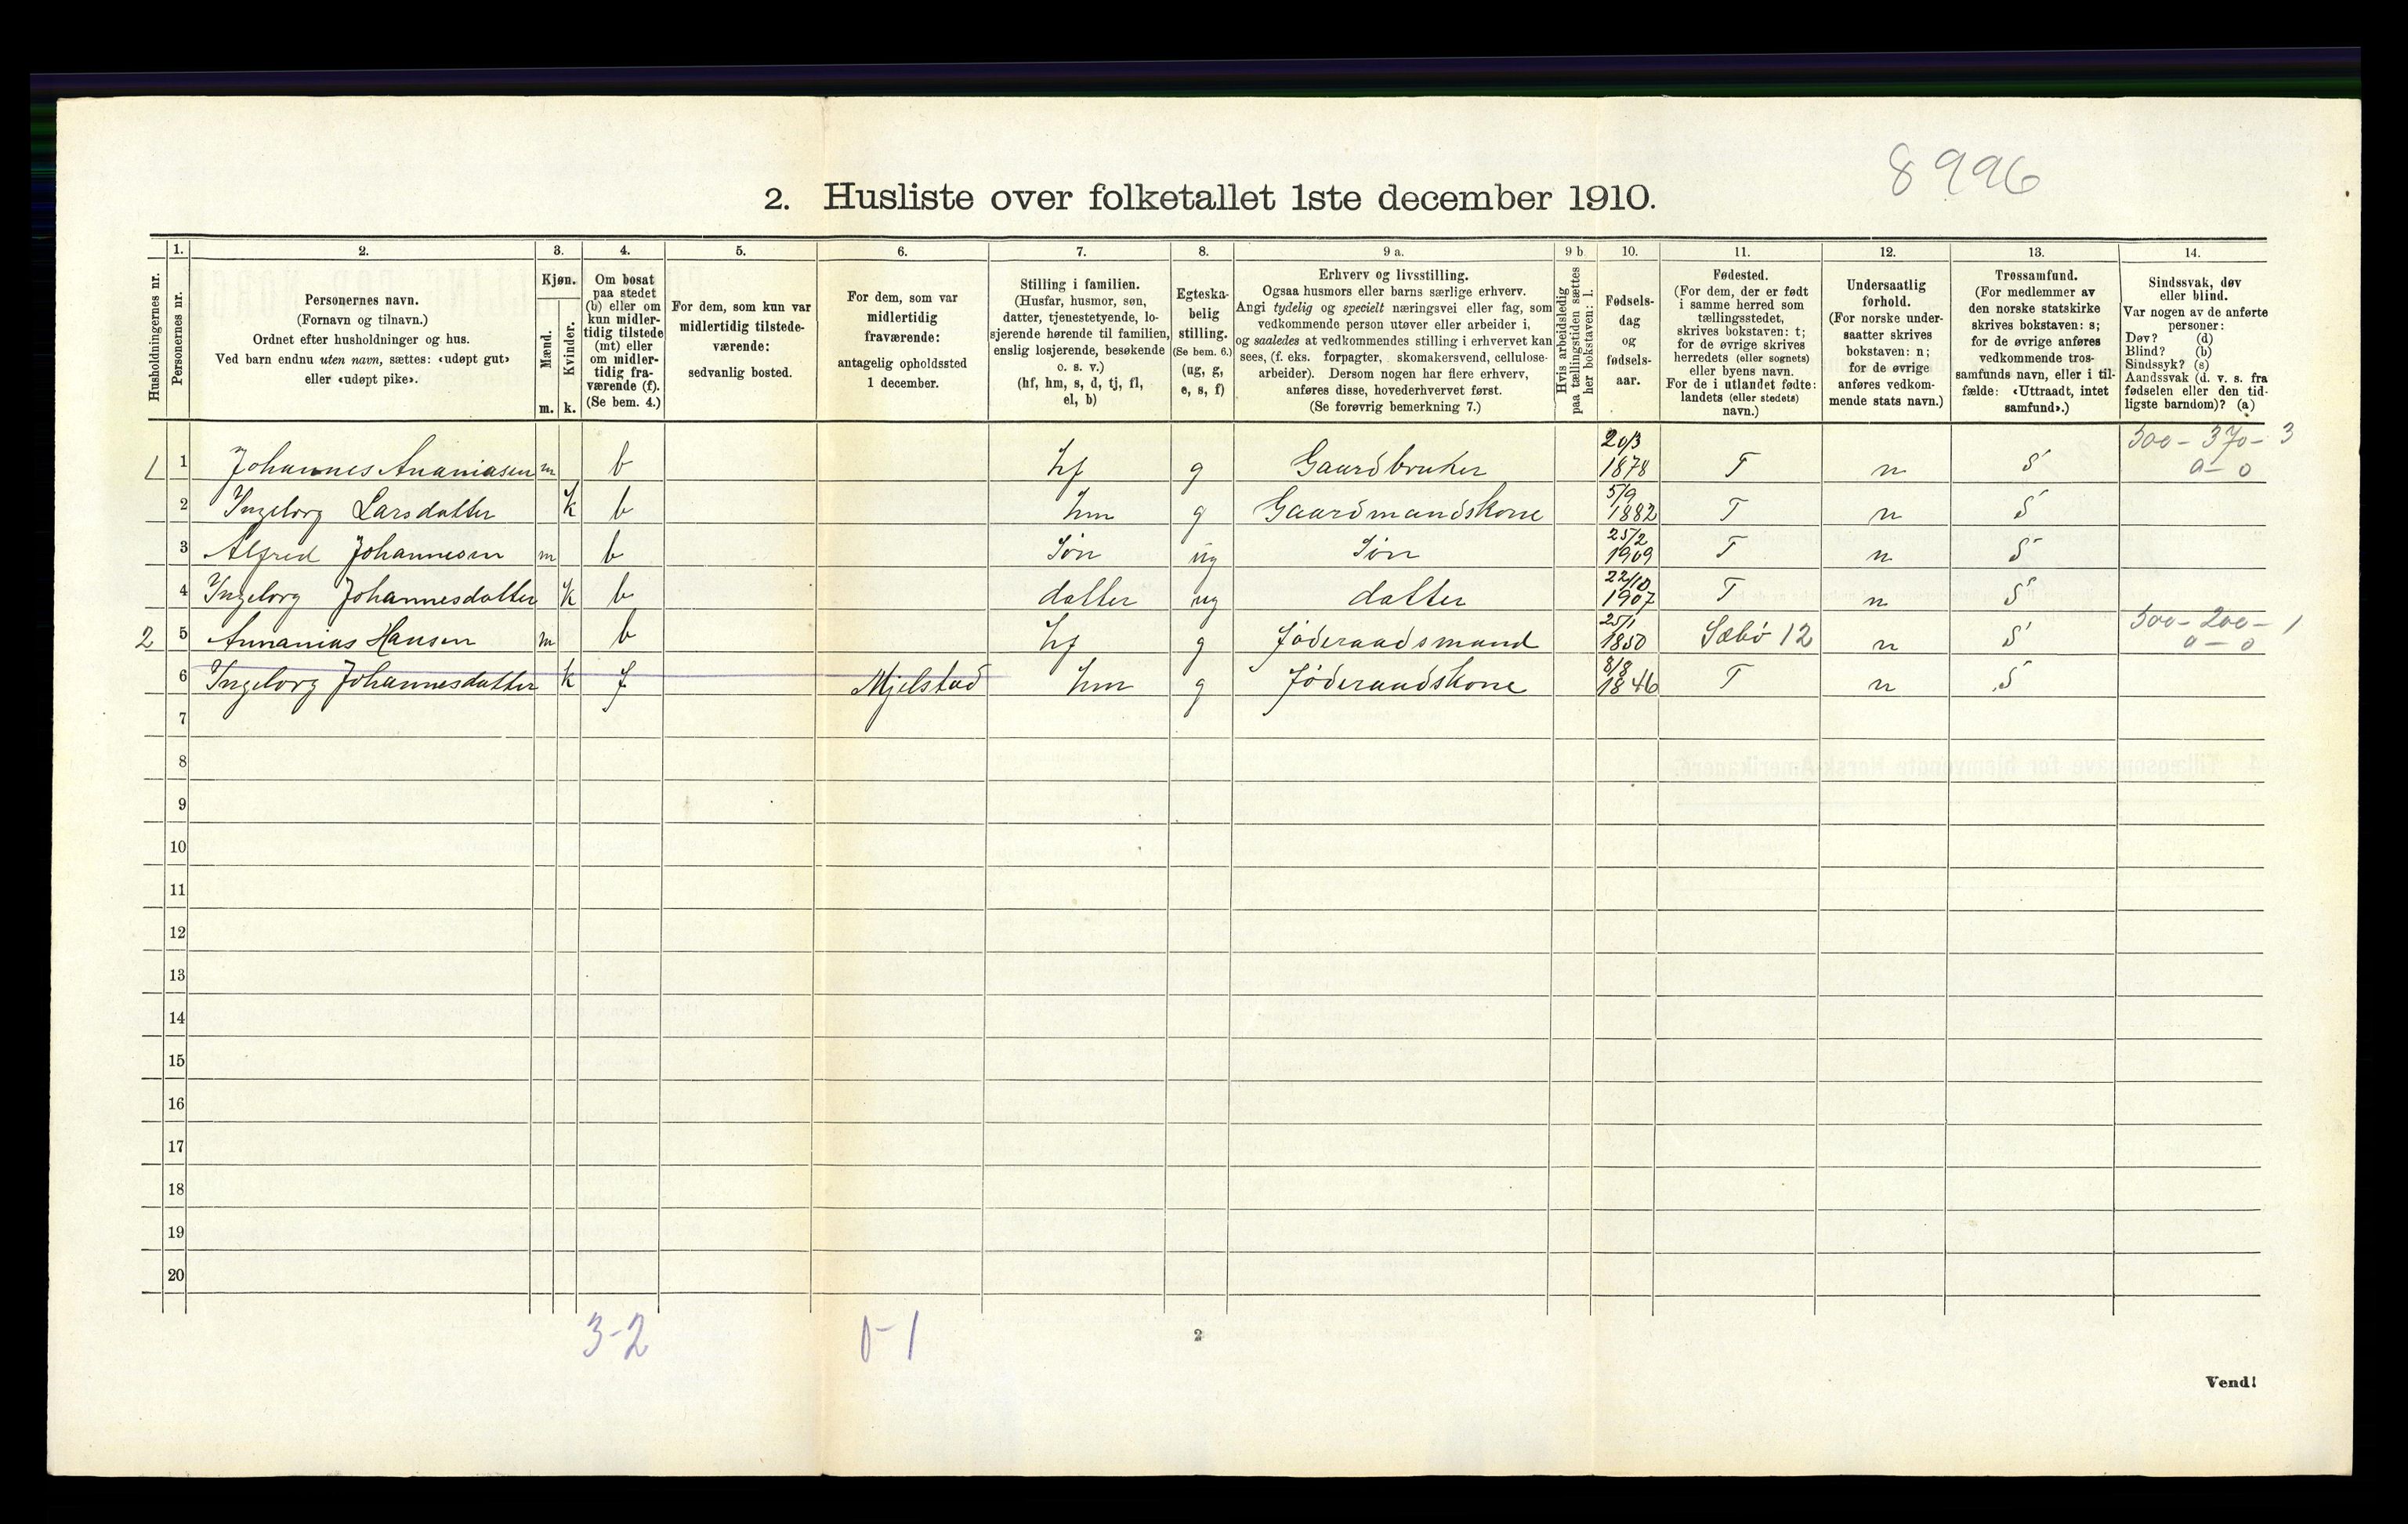 8996
2. Husliste over folketallet 1ste december 1910.
Husholdningernes nr.
1.
Personernes nr.
2.
Personernes navn.
(Fornavn og tilnavn.)
Ordnet efter husholdninger og hus.
Ved barn endnu uten navn, sættes: «udøpt gut»
eller «udøpt pike».
3.
Kjøn.
Mænd.
m.
Kvinder.
k.
4.
Om bosat
paa stedet
(b) eller om
kun midler-
tidig tilstede
(mt) eller
om midler-
tidig fra-
værende (f).
(Se bem. 4.)
5.
For dem, som kun var
midlertidig tilstede-
værende:
sedvanlig bosted.
6.
For dem, som var
midlertidig
fraværende:
antagelig opholdssted
1 december.
7.
Stilling i familien.
(Husfar, husmor, søn,
datter, tjenestetyende, lo-
sjerende hørende til familien,
enslig losjerende, besøkende
o. s. v.)
(hf, hm, s, d, tj, fl,
el, b)
8.
Egteska-
belig
stilling.
(Se bem. 6.)
(ug, g,
e, s, f)
9 a.
Erhverv og livsstilling.
Ogsaa husmors eller barns særlige erhverv.
Angi tydelig og specielt næringsvei eller fag, som
vedkommende person utøver eller arbeider i,
og saaledes at vedkommendes stilling i erhvervet kan
sees, (f. eks. forpagter, skomakersvend, cellulose-
arbeider). Dersom nogen har flere erhverv,
anføres disse, hovederhvervet først.
(Se forøvrig bemerkning 7.)
9 b
Hvis arbeidsledig
paa tællingstiden sættes
her bokstaven: l.
10.
Fødsels-
dag
og
fødsels-
aar.
11.
Fødested.
(For dem, der er født
i samme herred som
tællingsstedet,
skrives bokstaven: t;
for de øvrige skrives
herredets (eller sognets)
eller byens navn.
For de i utlandet fødte:
landets (eller stedets)
navn.)
12.
Undersaatlig
forhold.
(For norske under-
saatter skrives
bokstaven: n;
for de øvrige
anføres vedkom-
mende stats navn.)
13.
Trossamfund.
(For medlemmer av
den norske statskirke
skrives bokstaven: s;
for de øvrige anføres
vedkommende tros-
samfunds navn, eller i til-
fælde: «Uttraadt, intet
samfund».)
14.
Sindssvak, døv
eller blind.
Var nogen av de anførte
personer:
Døv? (d)
Blind? (b)
Sindssyk? (s)
Aandssvak (d. v. s. fra
fødselen eller den tid-
ligste barndom)? (a)
1 1 Johannes Ananiasen m b hf g Gaardbruker 20/3 1878 T n S 300-370-3 0-0
2 Ingeborg Larsdatter k b hm g Gaardmandskone 5/9 1882 T n S
3 Alfred Johannesen m b Søn ug Søn 25/2 1909 T n S
4 Ingeborg Johannesdatter k b datter ug datter 22/10 1907 T n S
2 5 Annanias Hansen m b hf g Føderaadsmand 25/1 1850 Sæbø 12 n S 300-200-1 0-0
6 Ingeborg Johannesdatter k f Mjelstad hm g Føderaadskone 8/8 1846 T n S
7
8
9
10
11
12
13
14
15
16
17
18
19
20
3-2 0-1
2
Vend!